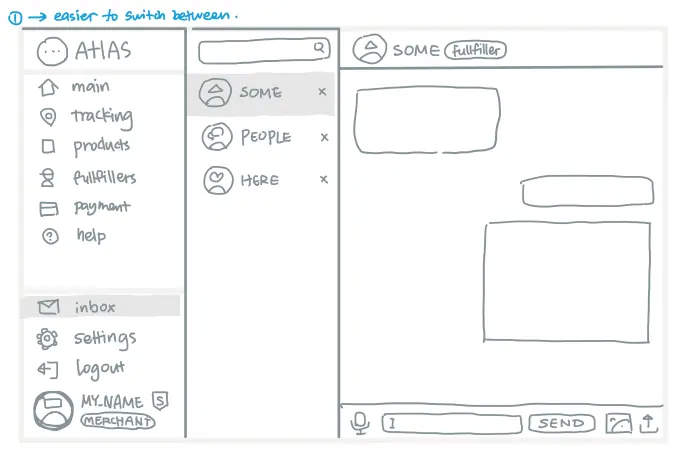 ① → easier to switch between.
ATLAS
main
tracking
products
fullfillers
payment
help
inbox
settings
logout
MY_NAME S
MERCHANT
SOME x
PEOPLE x
HERE x
SOME fullfiller
SEND